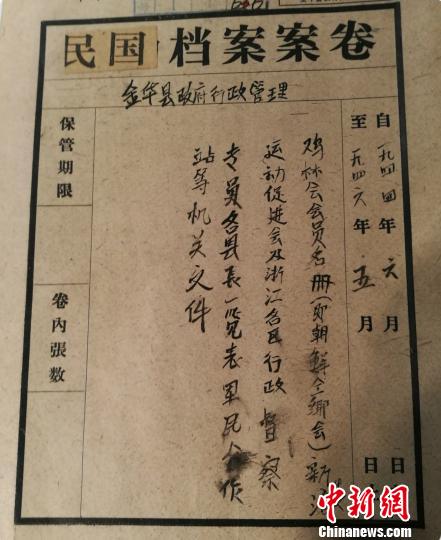 民国档案案卷
金华县政府行政管理
自一九四四年六月 日
至一九四六年五月 日
鸡林会会员名册(即朝鲜仝鄉会)新
运动促进会及浙江各区行政督察
专员各县长一览表军民合作
站等机关文件
保管期限
卷內張数
中新网
www.chinanews.com